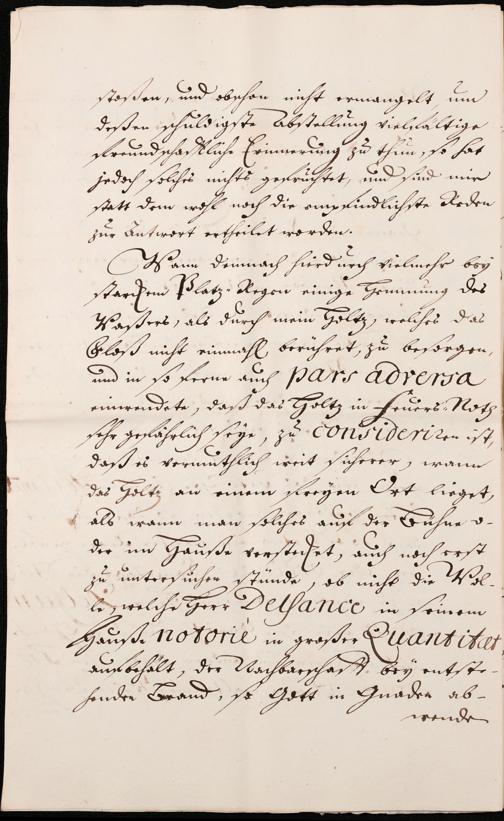 stoßen, und obschon nicht ermangelt, um
deßen schuldigste Abstellung vielfältige
freundschafftliche Erinnerung zu thun, so hat
jedoch solches nichts gefruchtet, und sind mir
statt dem wohl noch die empfindlichste Reden
zur Antwort ertheilet worden.
Wann demnach hierdurch vielmehr bey
starckem Platz-Regen einige Hemmung des
Waßers, als durch mein Holtz, welches das
Floß nicht einmahl berühret, zu besorgen,
und in so ferne auch pars adversa
einwendete, daß das Holtz in Feuers-Noth
sehr gefährlich seye, zu consideriren ist,
daß es vermuthlich weit sicherer, wann
das Holtz an einem freyen Ort lieget,
als wann man solches auf der Bühne o-
der im Hauße verstecket, auch noch erst
zu untersuchen stünde, ob nicht die Wol-
le, welche Herr Delsance in seinem
Hauße notorie in großer Quantitæt
aufbehält, der Nachbarschafft bey entste-
henden Brand, so Gott in Gnaden ab-
wende